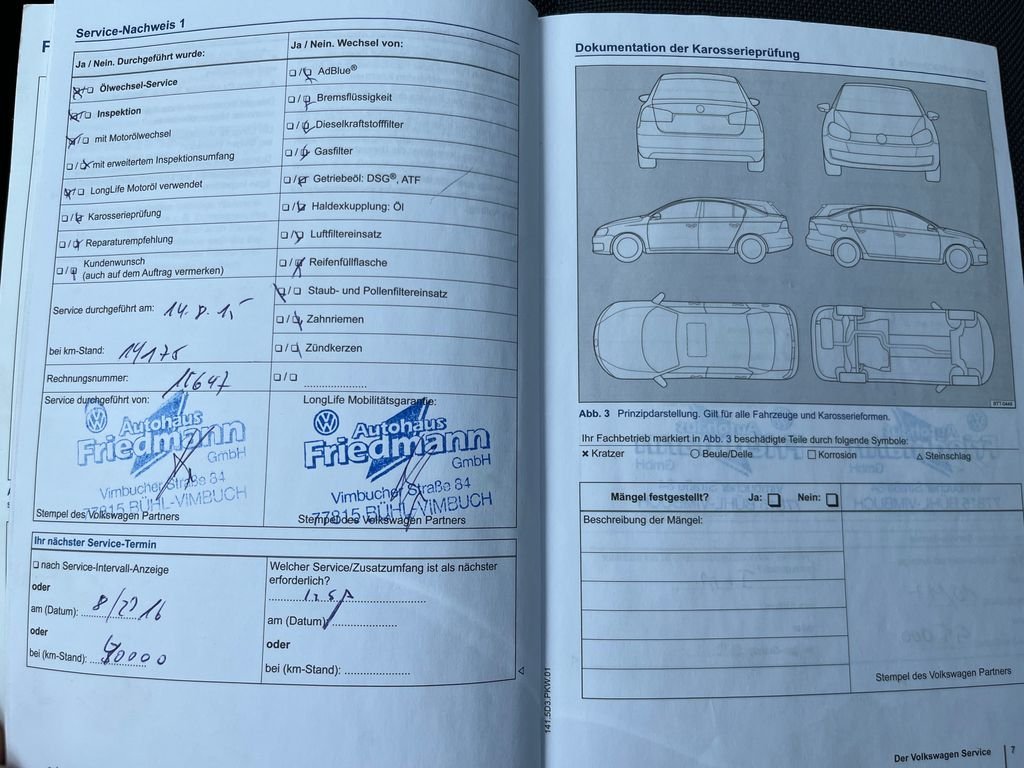 Service-Nachweis 1
Ja / Nein. Durchgeführt wurde:
Ölwechsel-Service
Inspektion
mit Motorölwechsel
mit erweitertem Inspektionsumfang
LongLife Motoröl verwendet
Karosserieprüfung
Reparaturempfehlung
Kundenwunsch
(auch auf dem Auftrag vermerken)
Service durchgeführt am: 14.8.15
bei km-Stand: 14175
Rechnungsnummer: 15647
Service durchgeführt von:
Autohaus
Friedmann
GmbH
Vimbucher Straße 84
77815 BÜHL-VIMBUCH
Stempel des Volkswagen Partners
Ja / Nein. Wechsel von:
AdBlue®
Bremsflüssigkeit
Dieselkraftstofffilter
Gasfilter
Getriebeöl: DSG®, ATF
Haldexkupplung: Öl
Luftfiltereinsatz
Reifenfüllflasche
Staub- und Pollenfiltereinsatz
Zahnriemen
Zündkerzen
LongLife Mobilitätsgarantie:
Autohaus
Friedmann
GmbH
Vimbucher Straße 84
77815 BÜHL-VIMBUCH
Stempel des Volkswagen Partners
Ihr nächster Service-Termin
nach Service-Intervall-Anzeige
oder
am (Datum): 8/2016
oder
bei (km-Stand):
Welcher Service/Zusatzumfang ist als nächster
erforderlich?
am (Datum):
oder
bei (km-Stand):
141.5D3.PKW.01
Dokumentation der Karosserieprüfung
BTT-0449
Abb. 3 Prinzipdarstellung. Gilt für alle Fahrzeuge und Karosserieformen.
Ihr Fachbetrieb markiert in Abb. 3 beschädigte Teile durch folgende Symbole:
× Kratzer ○ Beule/Delle □ Korrosion △ Steinschlag
Mängel festgestellt? Ja: □ Nein: □
Beschreibung der Mängel:
Stempel des Volkswagen Partners
Der Volkswagen Service 7